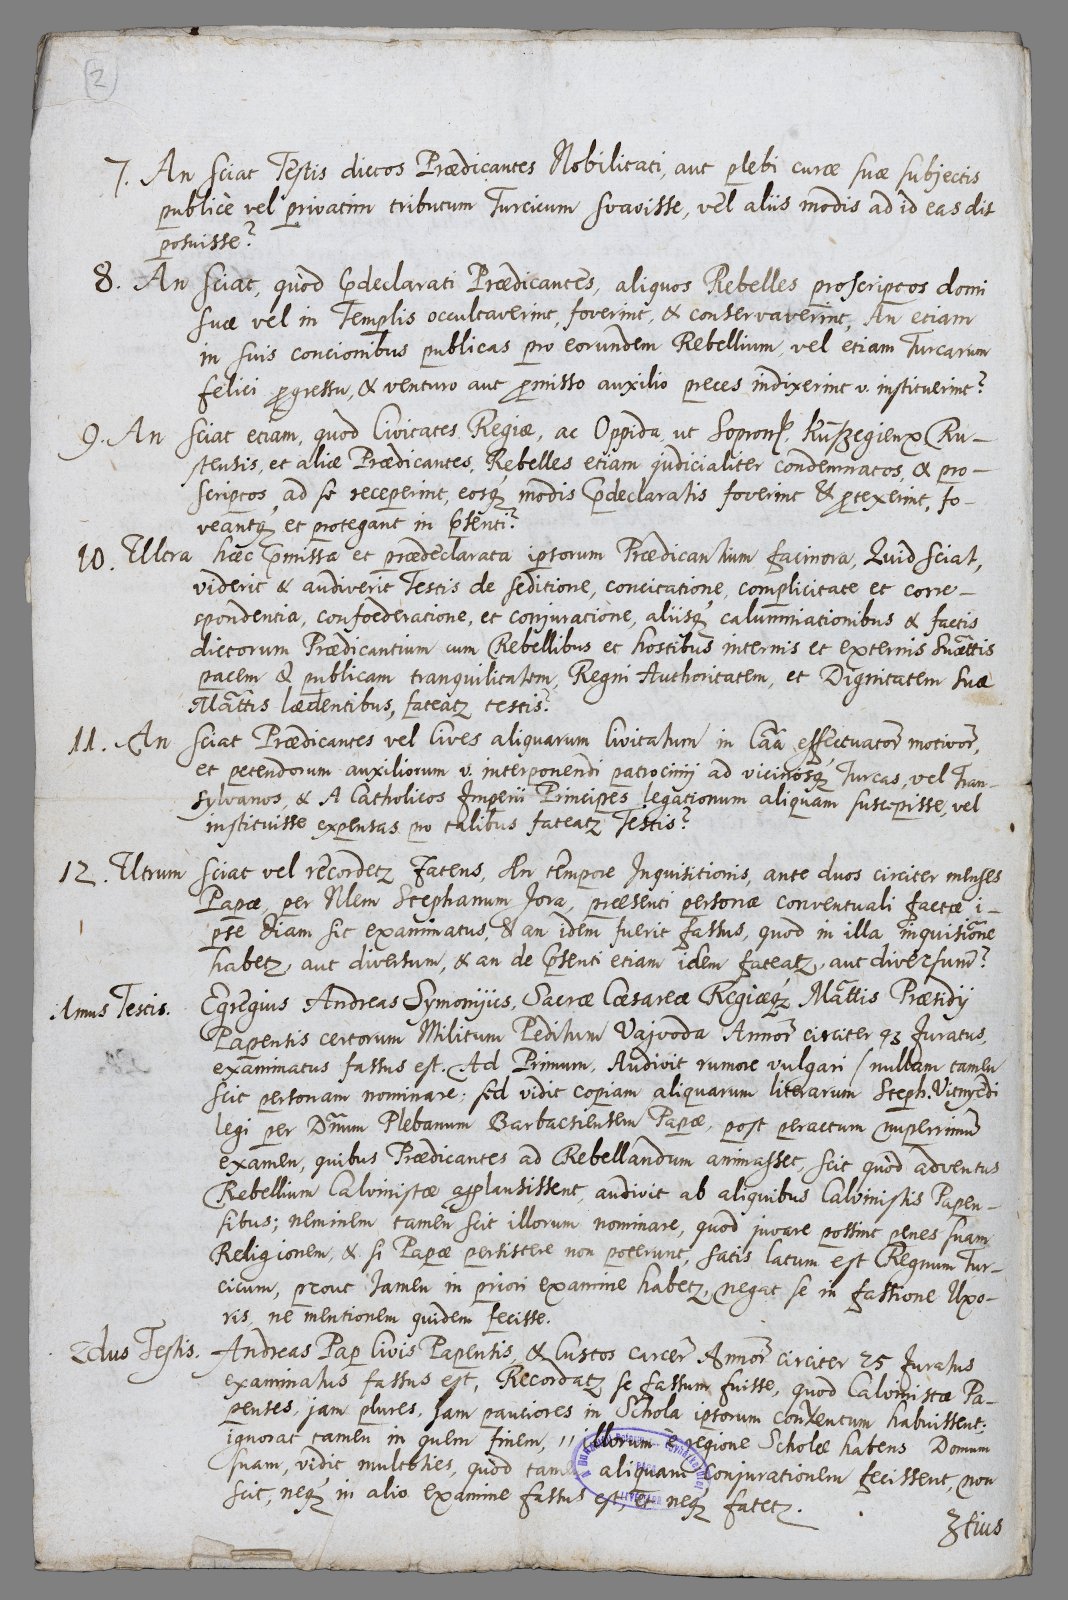 2
7. An sciat Testis dictos Prædicantes Nobilitati, aut plebi curæ suæ subjectis
publicè vel privatim tributum Turcicum svavisse, vel aliis modis ad id eas dis
posuisse?
8. An sciat, quòd p̄declarati Prædicantes, aliquos Rebelles proscriptos domi
suæ vel in Templis occultaverint, foverint, & conservaverint, An etiam
in suis concionibus publicas pro eorundem Rebellium, vel etiam Turcarum
felici ꝓgressu, & venturo aut ꝓmisso auxilio preces indixerint v. instituerint?
9. An sciat etiam, quod Civitates Regiæ, ac Oppida, ut Sopron, Kuszegienx Ru-
stensis, et aliæ Prædicantes, Rebelles etiam judicialiter condemnatos, & pro-
scriptos, ad se receperint, eosq́ modis p̄declaratis foverint & ꝓtexerint, fo-
veantq́ et protegant in p̄senti?
10. Ultra hæc p̄missa et prædeclarata ipsorum Prædicantium facinora, Quid sciat,
viderit & audiverit Testis de seditione, concitatione, complicitate et corre-
spondentia, confoederatione, et conjuratione, aliisq́ calumniationibus & factis
dictorum Prædicantium cum Rebellibus et hostibus internis et externis Suæ Mattis
pacem & publicam tranquilitatem, Regni Authoritatem, et Dignitatem Suæ
Mattis lædentibus, fateatz testis?
11. An sciat Prædicantes vel Cives aliquarum Civitatum in Caā effectuator motivor,
et petendorum auxiliorum v. interponendi patrocinij ad vicinosq́ Turcas, vel Tran-
sylvanos, & A Catholicos Imperii Principes legationum aliquam suscepisse, vel
instituisse expensas pro talibus fateatz Testis?
12. Utrum sciat vel recordetz Fatens, An tempore Inquisitionis, ante duos circiter menses
Papæ, per Nlem Stephanum Jora, præsenti personæ conventuali factæ i-
pse etiam sit examinatus, & an idem fuerit fassus, quod in illa inquisitione
habetz, aut diversum, & an de p̄senti etiam idem fateatz, aut diversum?
1mus Testis. Egregius Andreas Symonyis, Sacræ Cæsareæ Regiæq́ Mattis Præsidij
Papensis certorum Militum Peditum Vajvoda Annor circiter 43 Juratus,
examinatus fassus est. Ad Primum, Audivit rumore vulgari / nullam tamen
scit personam nominare: sed vidit copiam aliquarum literarum Steph. Vitnyedi
legi per Dnum Plebanum Barbacsiensem Papæ, post peractum nuperrimum
examen, quibus Prædicantes ad Rebellandum animasset, scit quòd adventus
Rebellium Calvinistæ applausissent, audivit ab aliquibus Calvinistis Papen-
sibus; neminem tamen scit illorum nominare, quod juvare possint penes suam
Religionem, & si Papæ persistere non poterunt, satis latum est Regnum Tur-
cicum, prout tamen in priori examine habetz, negat se in fassione Uxo-
ris, ne mentionem quidem fecisse.
2dus Testis. Andreas Pap Civis Papensis, & Custos carcer Annor circiter 25 Juratus
examinatus fassus est, Recordatz se fassum fuisse, quod Calvinistæ Pa-
penses, jam plures, jam pauciores in Schola ipsorum conventum habuissent:
ignorat tamen in quem finem, illorum è regione Scholæ habens Domum
suam, vidit multoties, quòd tamen aliquam Conjurationem fecissent, non
scit, neq́ in alio examine fassus est, et neq́ fatetz.
3tius